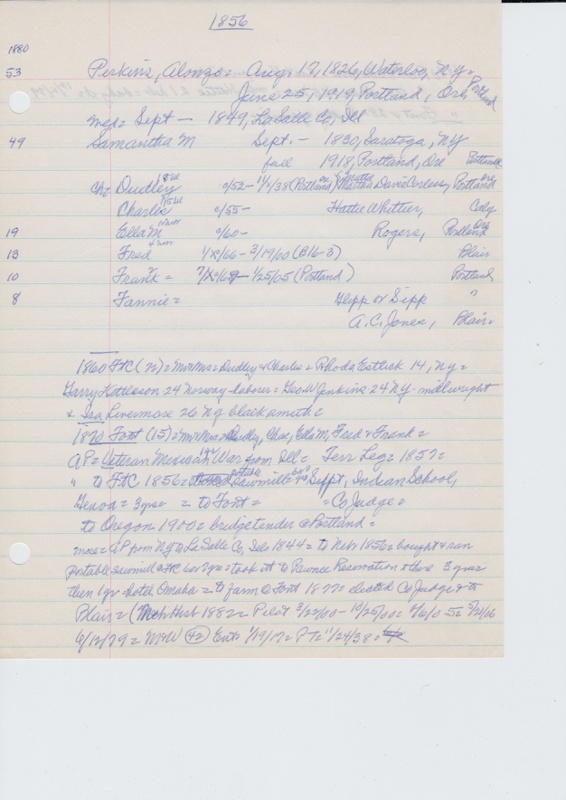 1856
1880
53 Perkins, Alonzo = Aug. 17, 1826, Waterloo, N.Y. =
June 25, 1919, Portland, Ore Portland
md = Sept — 1849, LaSalle Co, Ill
49 Samantha M Sept. - 1830, Saratoga, NY
1918, Portland, Ore Portland
Ch: Dudley 0/52 - 1/1/38 (Portland) Martha Davis Corless, Portland Ore
Charlie 0/55 - Hattie Whittier, Caly
19 Ella M 0/60 - Rogers, Portland Ore
13 Fred - 3/19/60 (B16-3) Blair
10 Frank = - 1/25/05 (Portland) Portland
8 Fannie = Hipp or Sipp "
A.C. Jones, Blair =
1860 FtC (72) = Mr Mrs = Dudley & Charles = Rhoda Estlick 14, NY =
Garry Kettleson 24 Norway - laborer = Geo W Jenkins 24 NY - millwright
& Ira Livermore 26 NY blacksmith =
1870 Font (15) = Mr Mrs = Dudley, Chas, Ella M, Fred & Frank =
AP = Veteran Mexican War from Ill = Terr Leg = 1857 =
" to FtC 1856 = Sawmill = Suppt, Indian School,
Genoa = 3 yrs = to Font = = Co Judge =
to Oregon 1900 = bridge tender @ Portland =
more = AP from NY to LaSalle Co, Ills 1844 = to Neb 1856 = bought & ran
portable sawmill @ FtC for 2 yrs = took it to Pawnee Reservation & there 3 yrs
then 1 yr hotel Omaha = to farm @ Font 1877 = elected Co Judge & to
Blair = Hist 1882 = Pilot 3/22/00 - 10/25/00 = 4/6/05 = 5/24/06
6/12/79 = McW (42) Ent 1/19/17 = P To 11/24/38 =